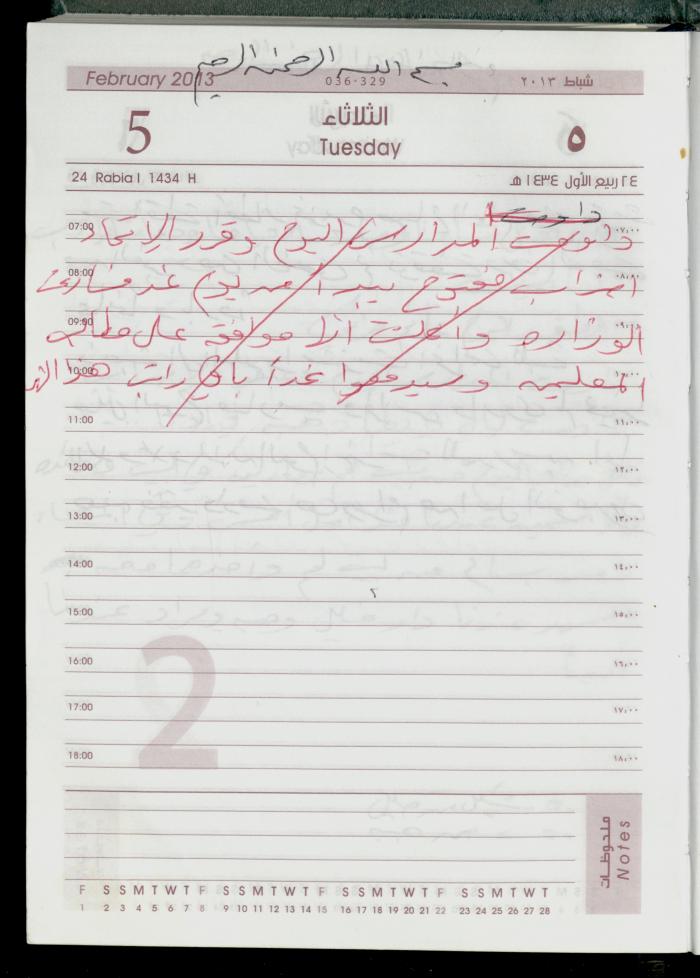 بسم الله الرحمن الرحيم
February 2013
036-329
شباط ٢٠١٣
5
الثلاثاء
Tuesday
٥
24 Rabia I 1434 H
٢٤ ربيع الأول ١٤٣٤ هـ
داومت
07:00 داومت المدارس اليوم وقرر الاتحاد ٠٧,٠٠
08:00 اضراب مفتوح يبدأ من يوم غد ٠٨,٠٠
09:00 الوزارة وأعلنت انها موافقة على مطالب ٠٩,٠٠
10:00 المعلمين وسيدفعوا غداً باقي راتب هذا الشهر ١٠,٠٠
11:00 ١١,٠٠
12:00 ١٢,٠٠
13:00 ١٣,٠٠
14:00 ١٤,٠٠
15:00 ١٥,٠٠
16:00 ١٦,٠٠
17:00 ١٧,٠٠
18:00 ١٨,٠٠
2
ملحوظات
Notes
F S S M T W T F S S M T W T F S S M T W T F S S M T W T
1 2 3 4 5 6 7 8 9 10 11 12 13 14 15 16 17 18 19 20 21 22 23 24 25 26 27 28